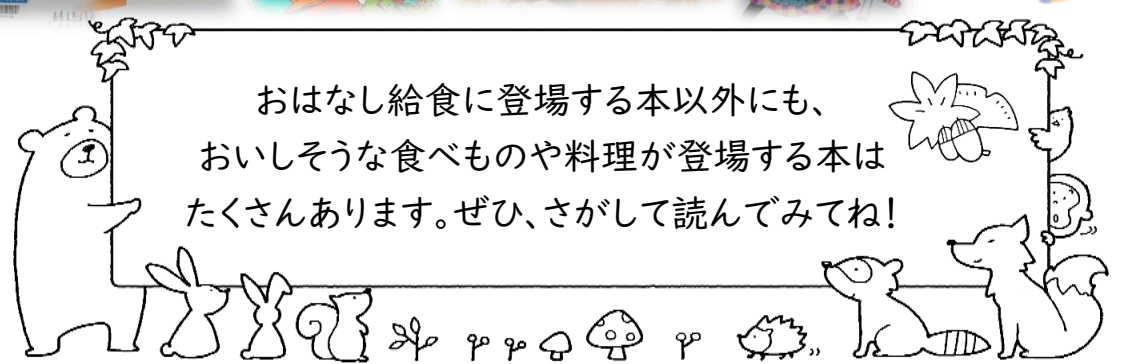 おはなし給食に登場する本以外にも、
おいしそうな食べものや料理が登場する本は
たくさんあります。ぜひ、さがして読んでみてね!